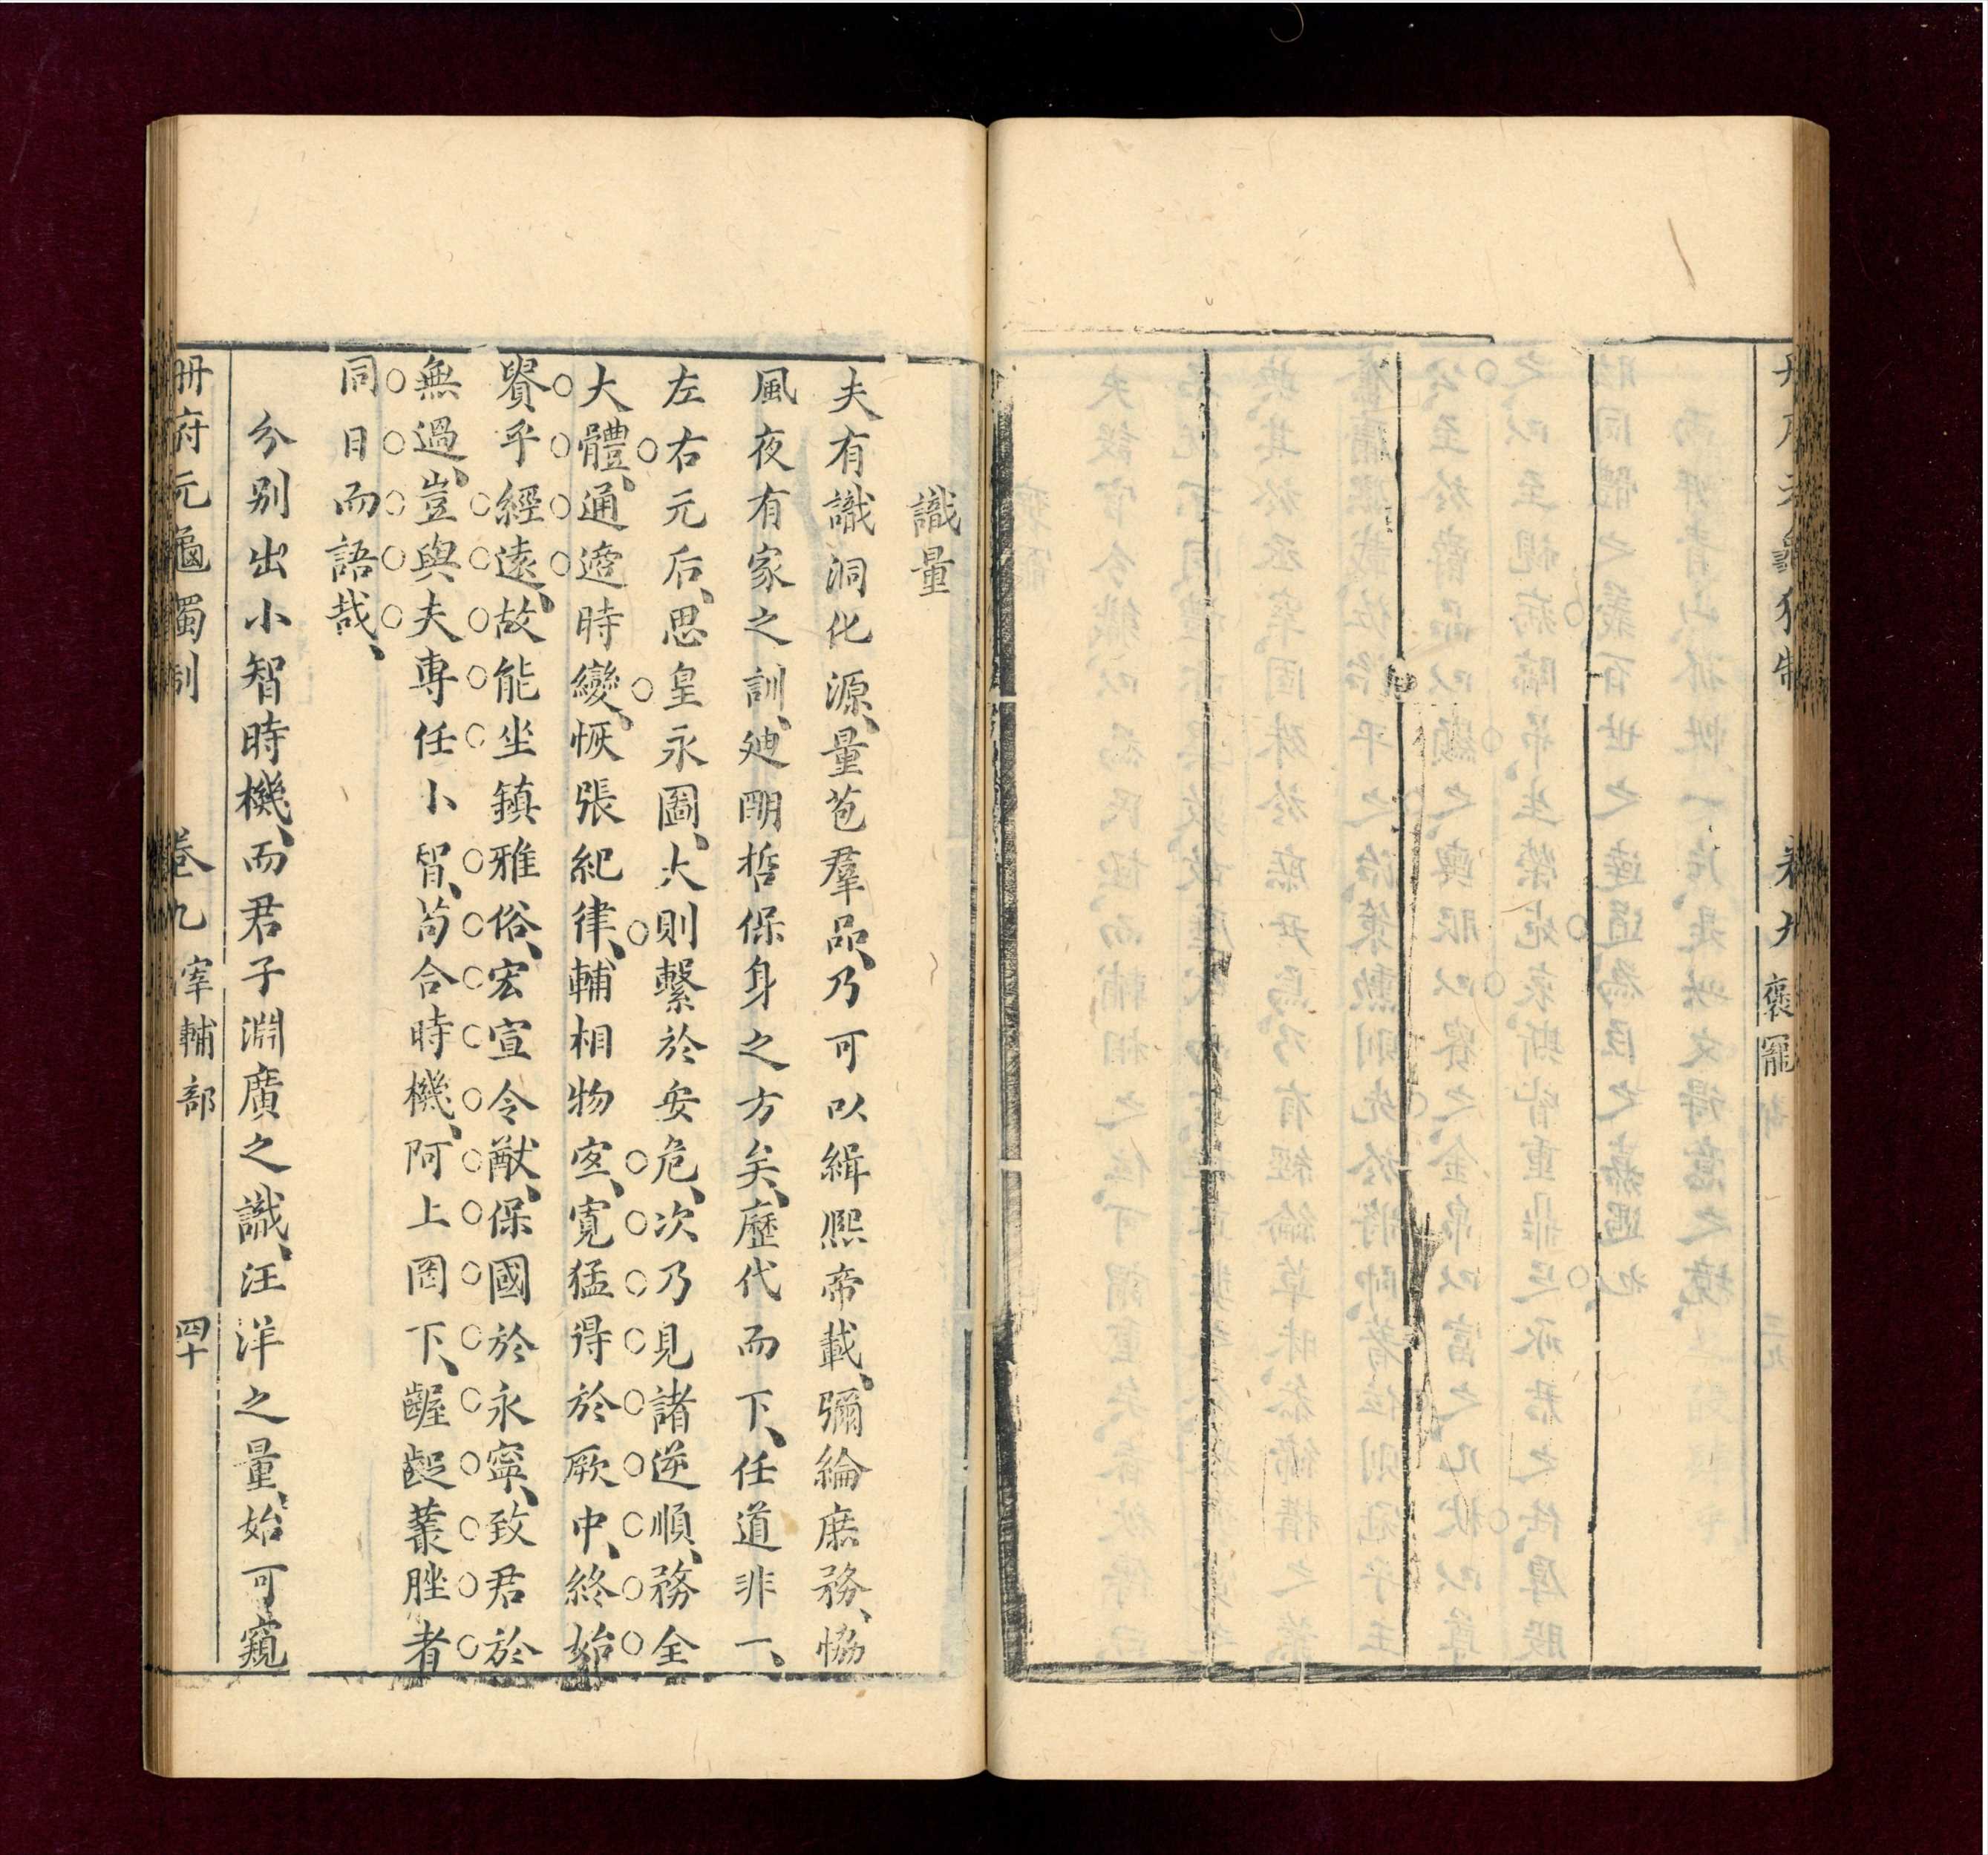 褒寵
識量
夫有識洞化源、量苞羣品、乃可以緝熙帝載、彌綸庶務、恊
風夜有家之訓、廸明哲保身之方矣、歷代而下、任道非一、
左右元后、思皇永圖、大則繫於安危、次乃見諸逆順、務全
大體、通逹時變、恢張紀律、輔相物宐、寛猛得於厥中、終始
賛乎經遠、故能坐鎮雅俗、宏宣令猷、保國於永寧、致君於
無過、豈與夫專任小智、苟合時機、阿上罔下、齷齪叢脞者
同日而語哉、
分别出小智時機、而君子淵廣之識、汪洋之量、始可窺
册府元龜獨制 卷九 宰輔部 四十